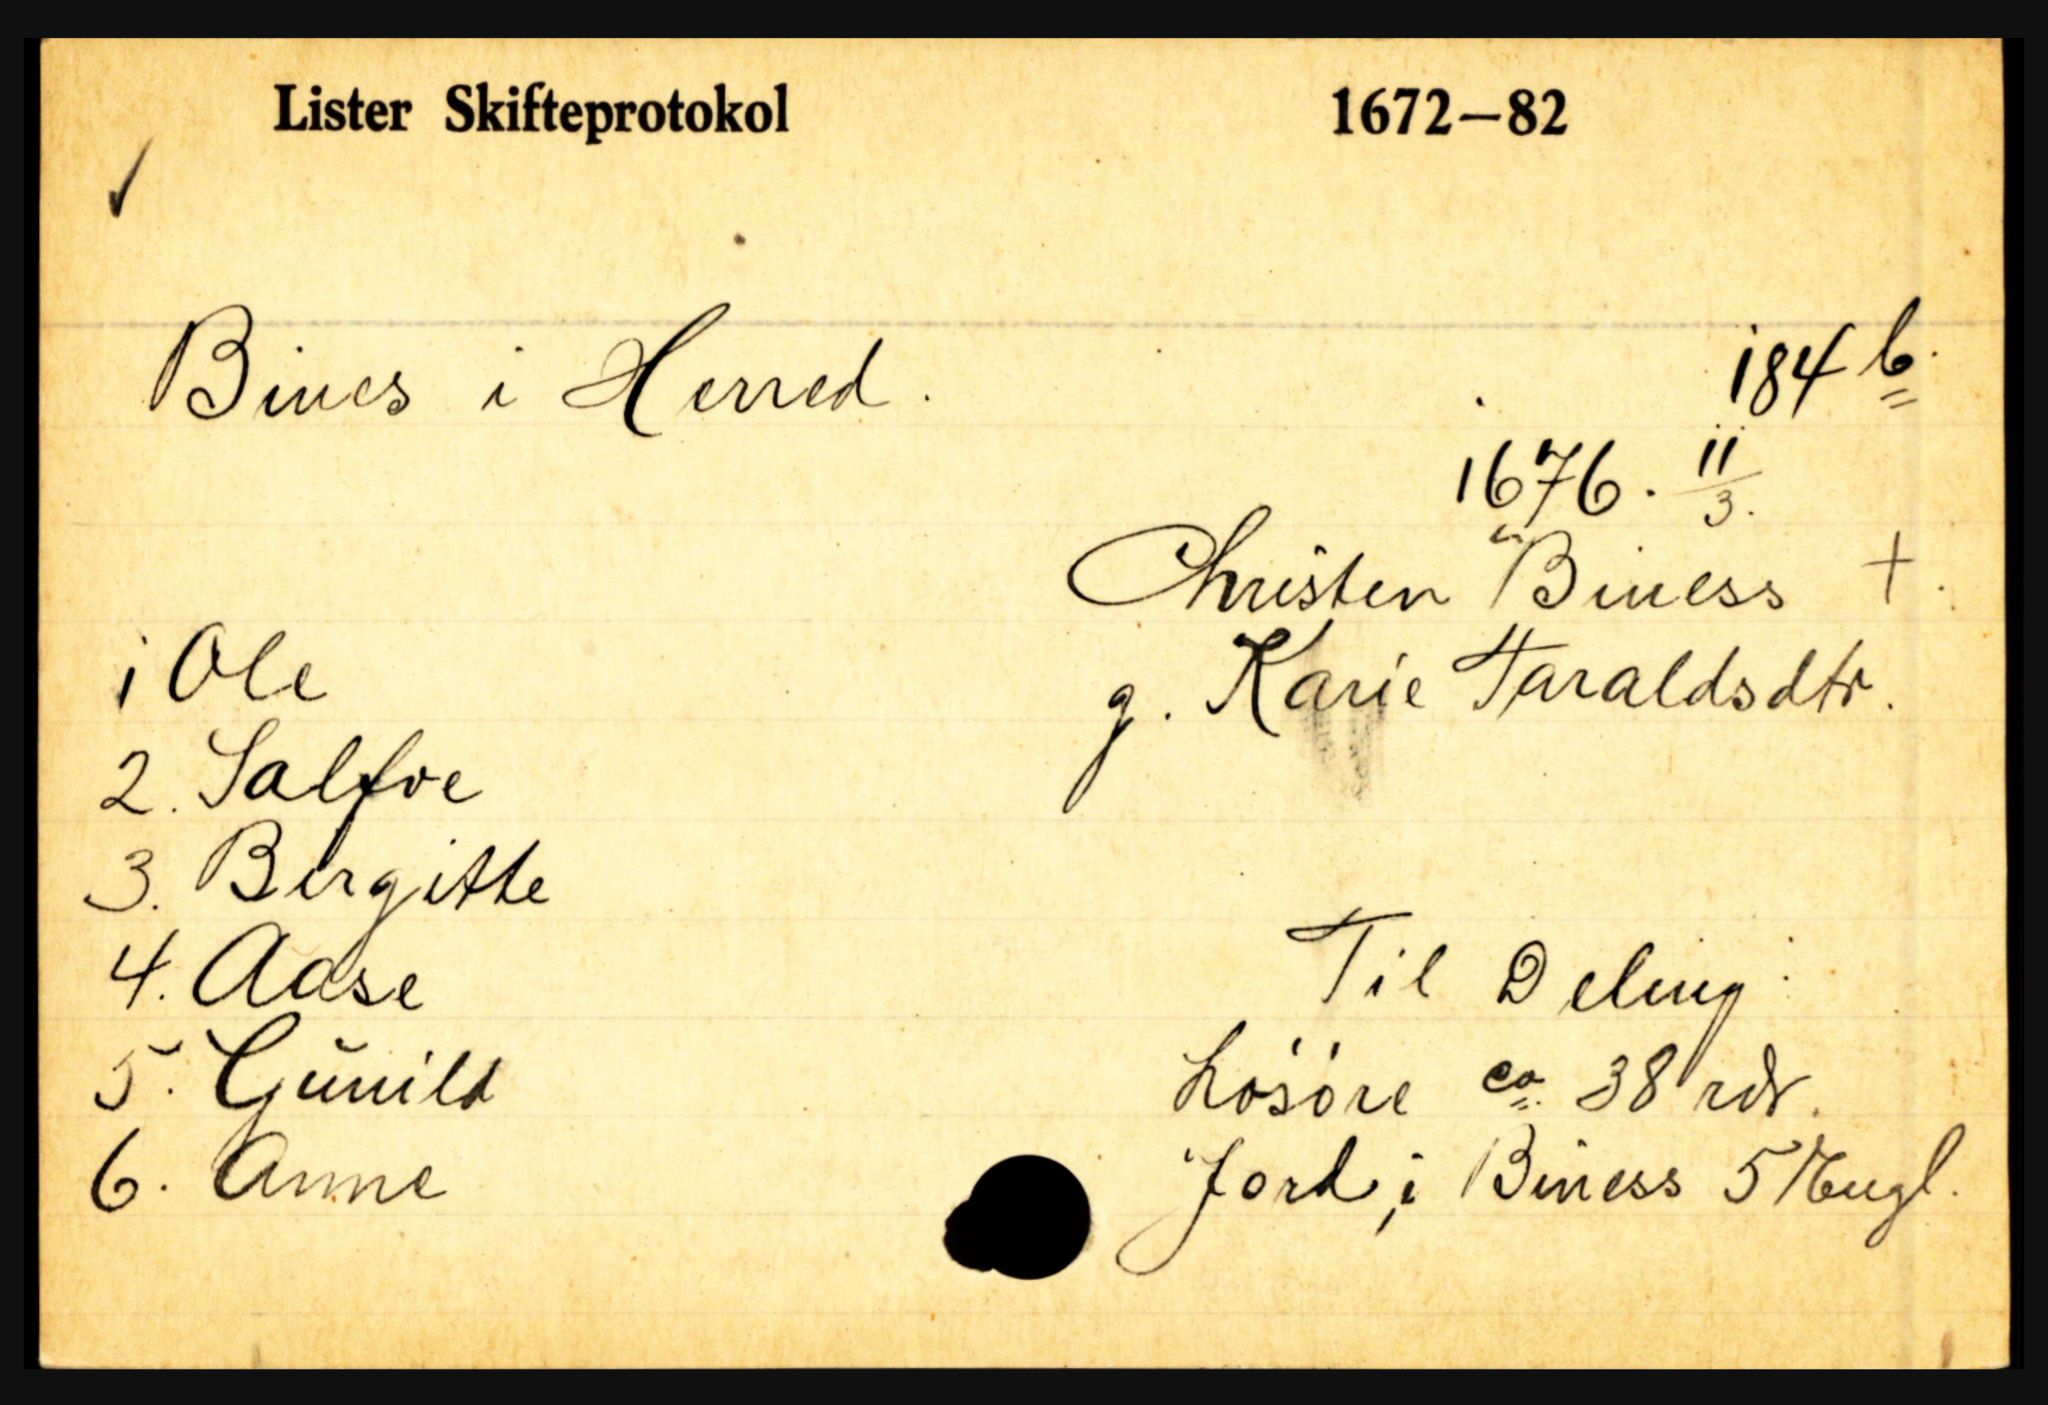 Lister Skifteprotokol 1672–82
Bines i Herred. 184 b.
1676. 11/3.
Christen Biness +.
g. Karie Taraldsdtr.
1 Ole
2. Salfve
3. Birgitte
4. Aase
5. Gŭnild
6. Anne
Til Deling:
Løsøre ca. 38 rdr.
Jord i Biness 5 Engl.